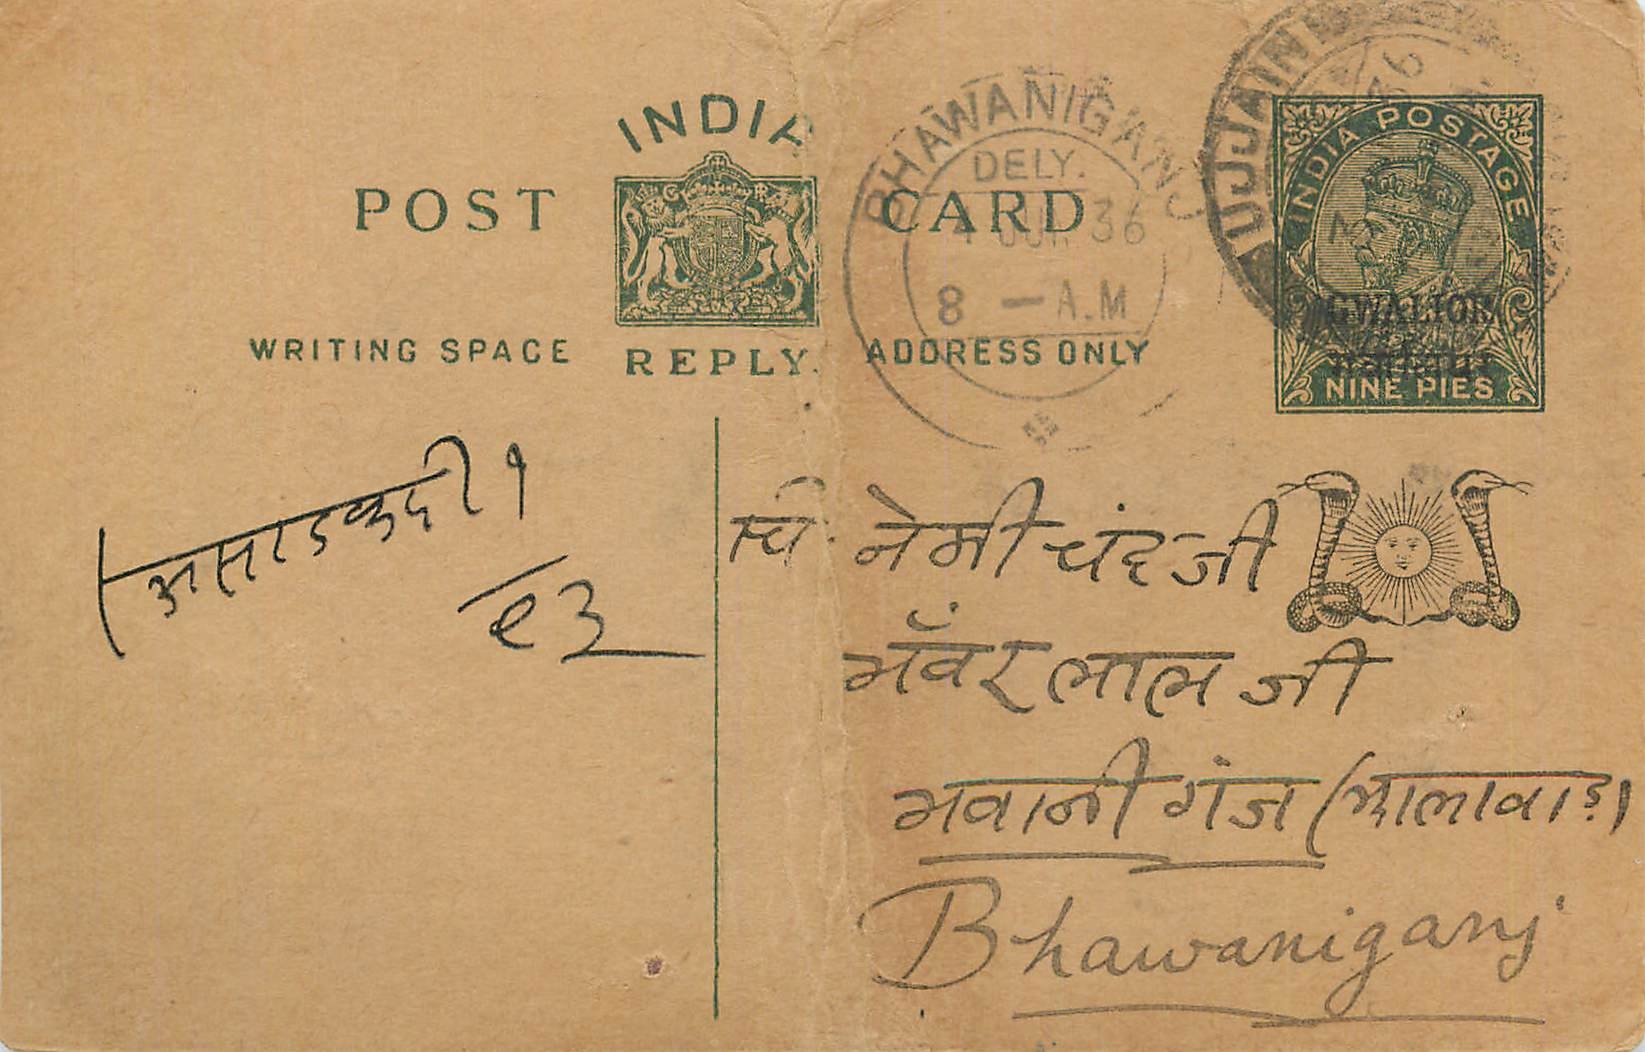 INDIA
POST CARD
WRITING SPACE REPLY. ADDRESS ONLY
BHAWANIGANJ
DELY.
JUN 36
8 — A.M
UJJAIN
36
INDIA POSTAGE
GWALIOR
NINE PIES
असाडवदी १
९३
चि नेमीचंदजी
भँवरलालजी
भवानीगंज (झालावाड़)
Bhawaniganj